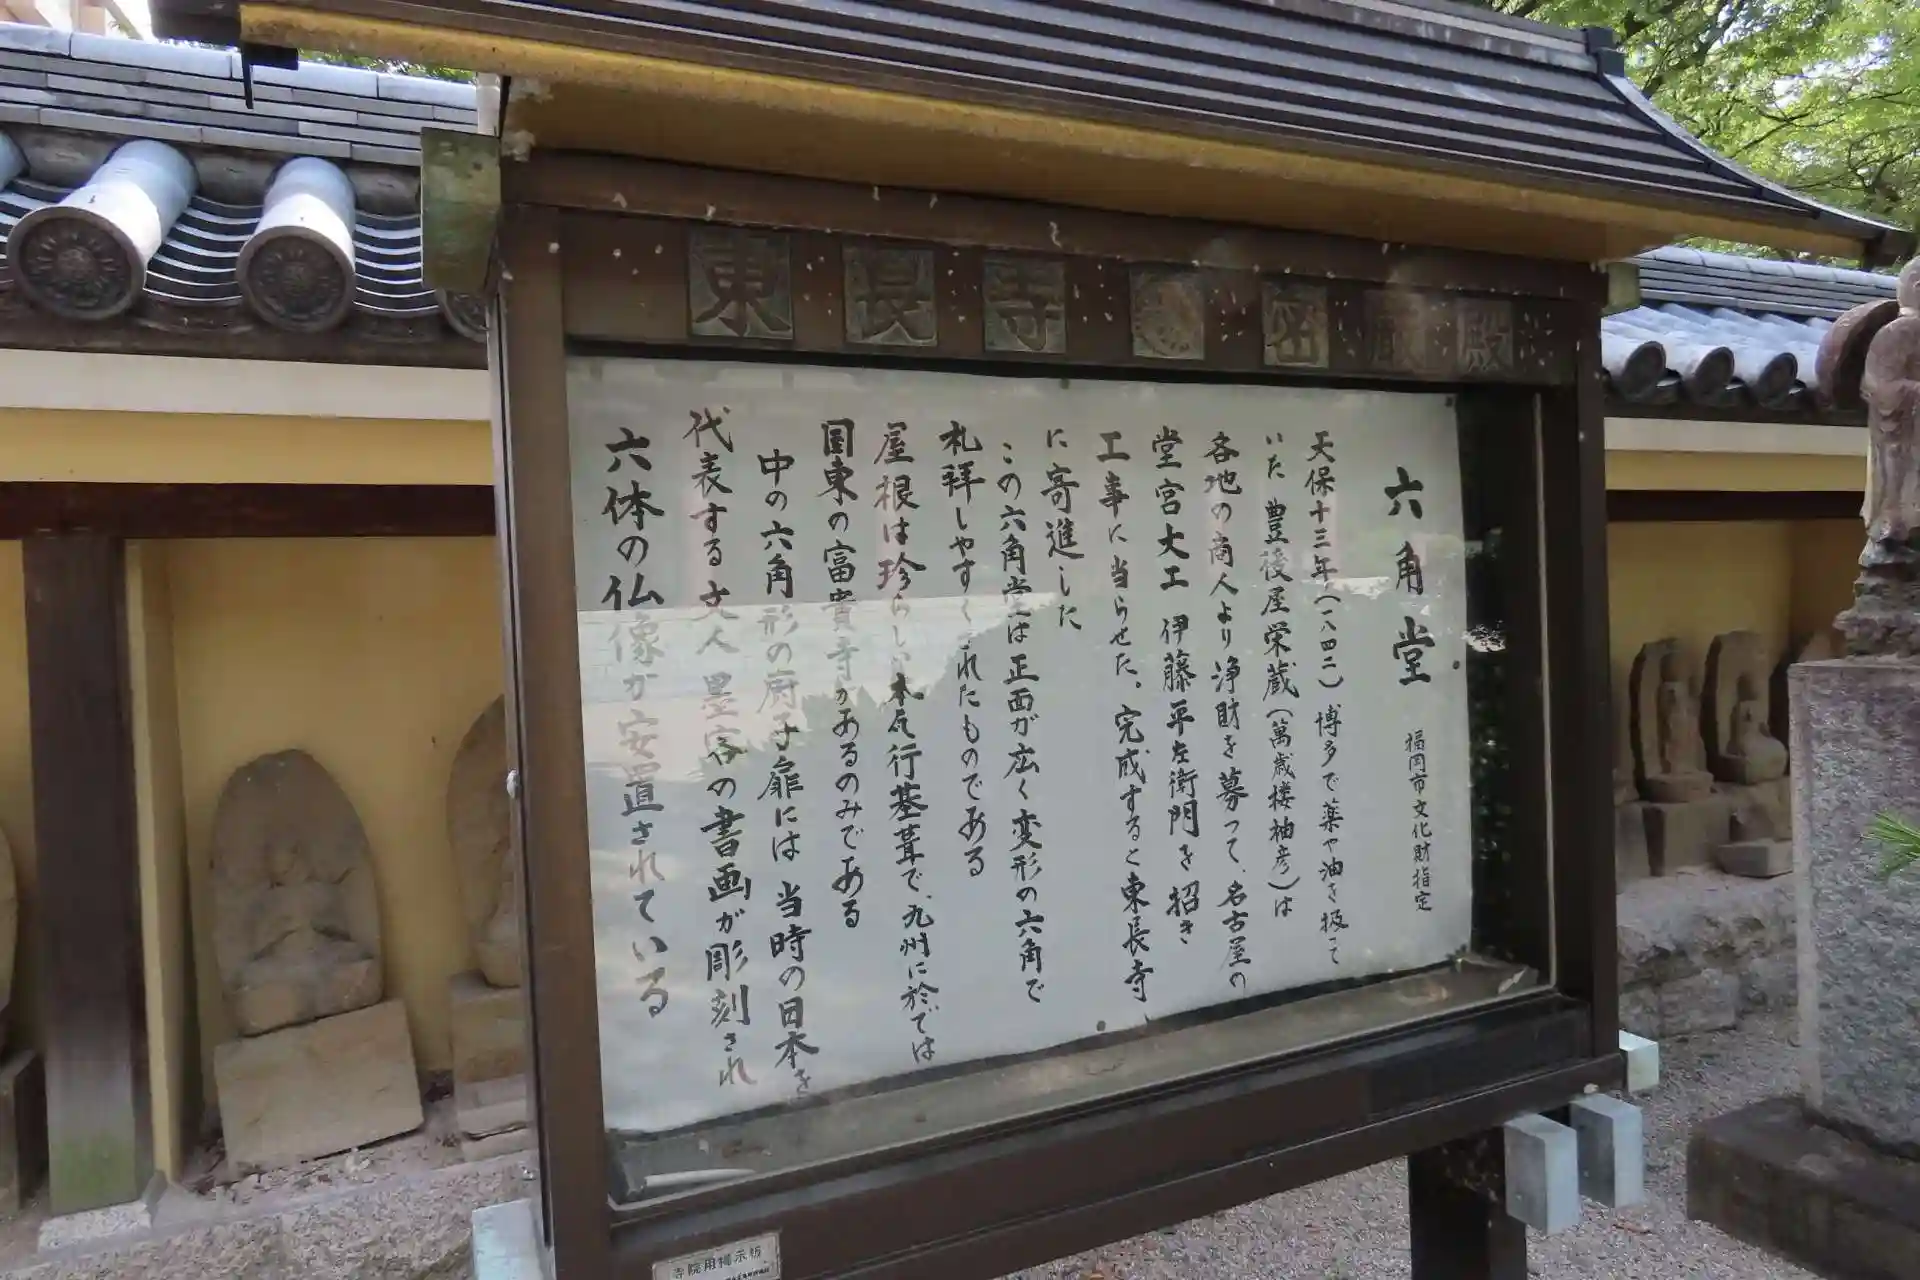 東長寺 密蔵殿
六角堂 福岡市文化財指定
天保十三年(一八四二)博多で薬や油を扱って
いた 豊後屋栄蔵(萬歳楼柚彦)は
各地の商人より浄財を募って、名古屋の
堂宮大工 伊藤平左衛門を招き
工事に当らせた。完成すると東長寺
に寄進した
この六角堂は正面が広く変形の六角で
礼拝しやすくされたものである
屋根は珍らしい本瓦行基葺で、九州に於ては
国東の富貴寺があるのみである
中の六角形の厨子扉には当時の日本を
代表する文人墨客の書画が彫刻され
六体の仏像が安置されている
寺院用掲示板